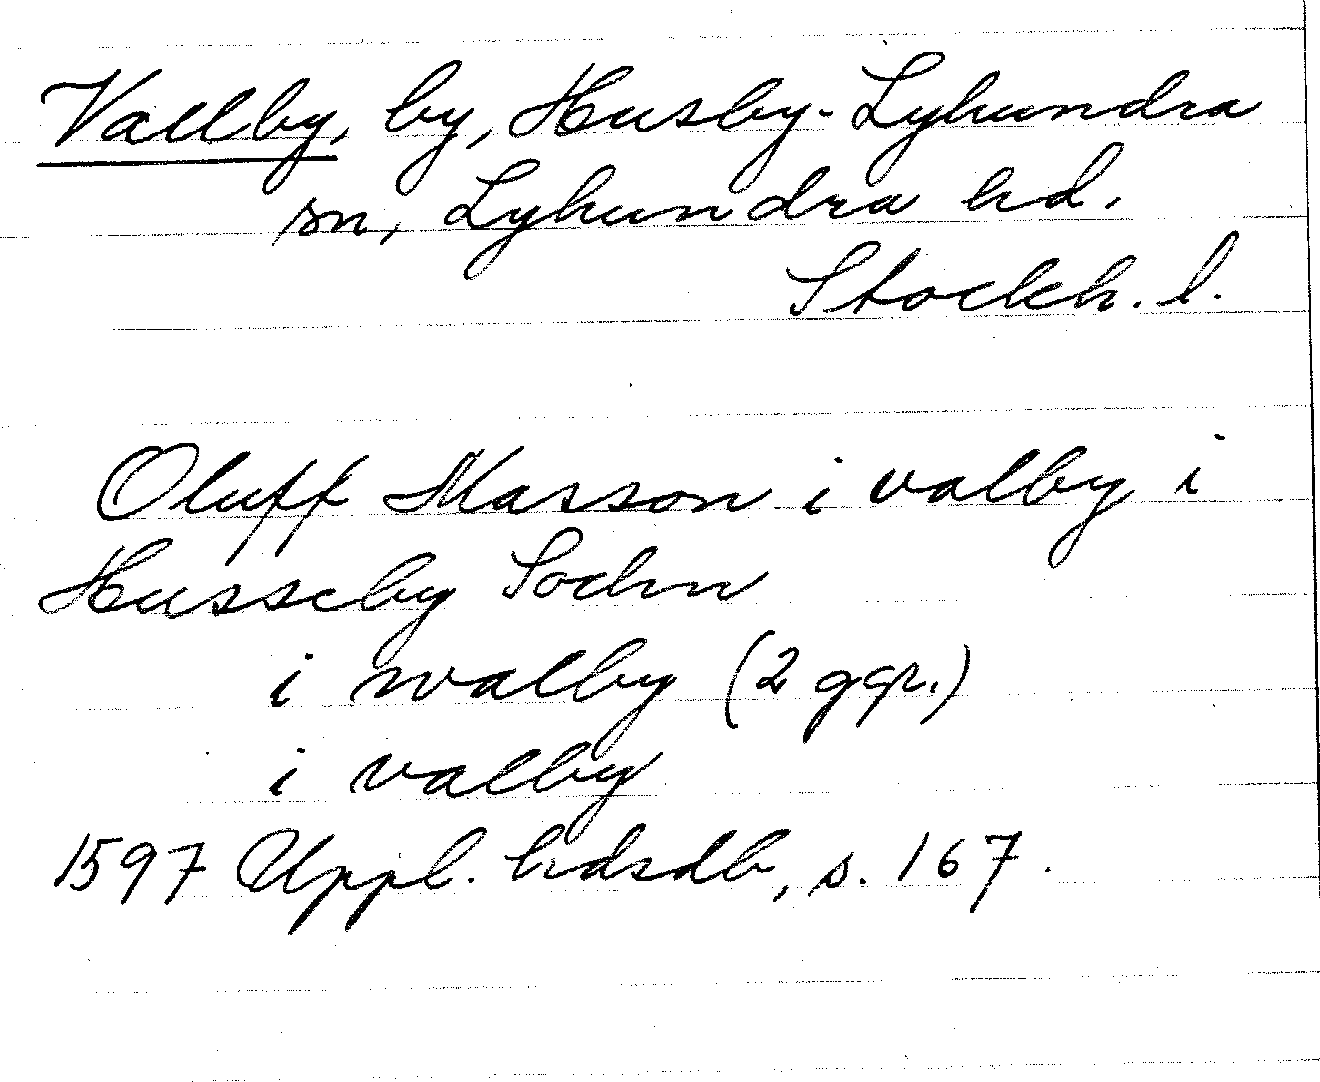 Vallby, by, Husby-Lyhundra
sn, Lyhundra hd.
Stockh. l.
Oluff Masson i valby i
Husseby Sochn
i walby (2 ggr.)
i valby
1597 Uppl. hdsdb, s. 167.